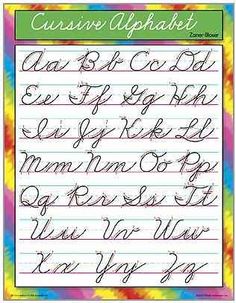 Cursive Alphabet
Zaner-Bloser
Aa Bb Cc Dd
Ee Ff Gg Hh
Ii Jj Kk Ll
Mm Nn Oo Pp
Qq Rr Ss Tt
Uu Vv Ww
Xx Yy Zz